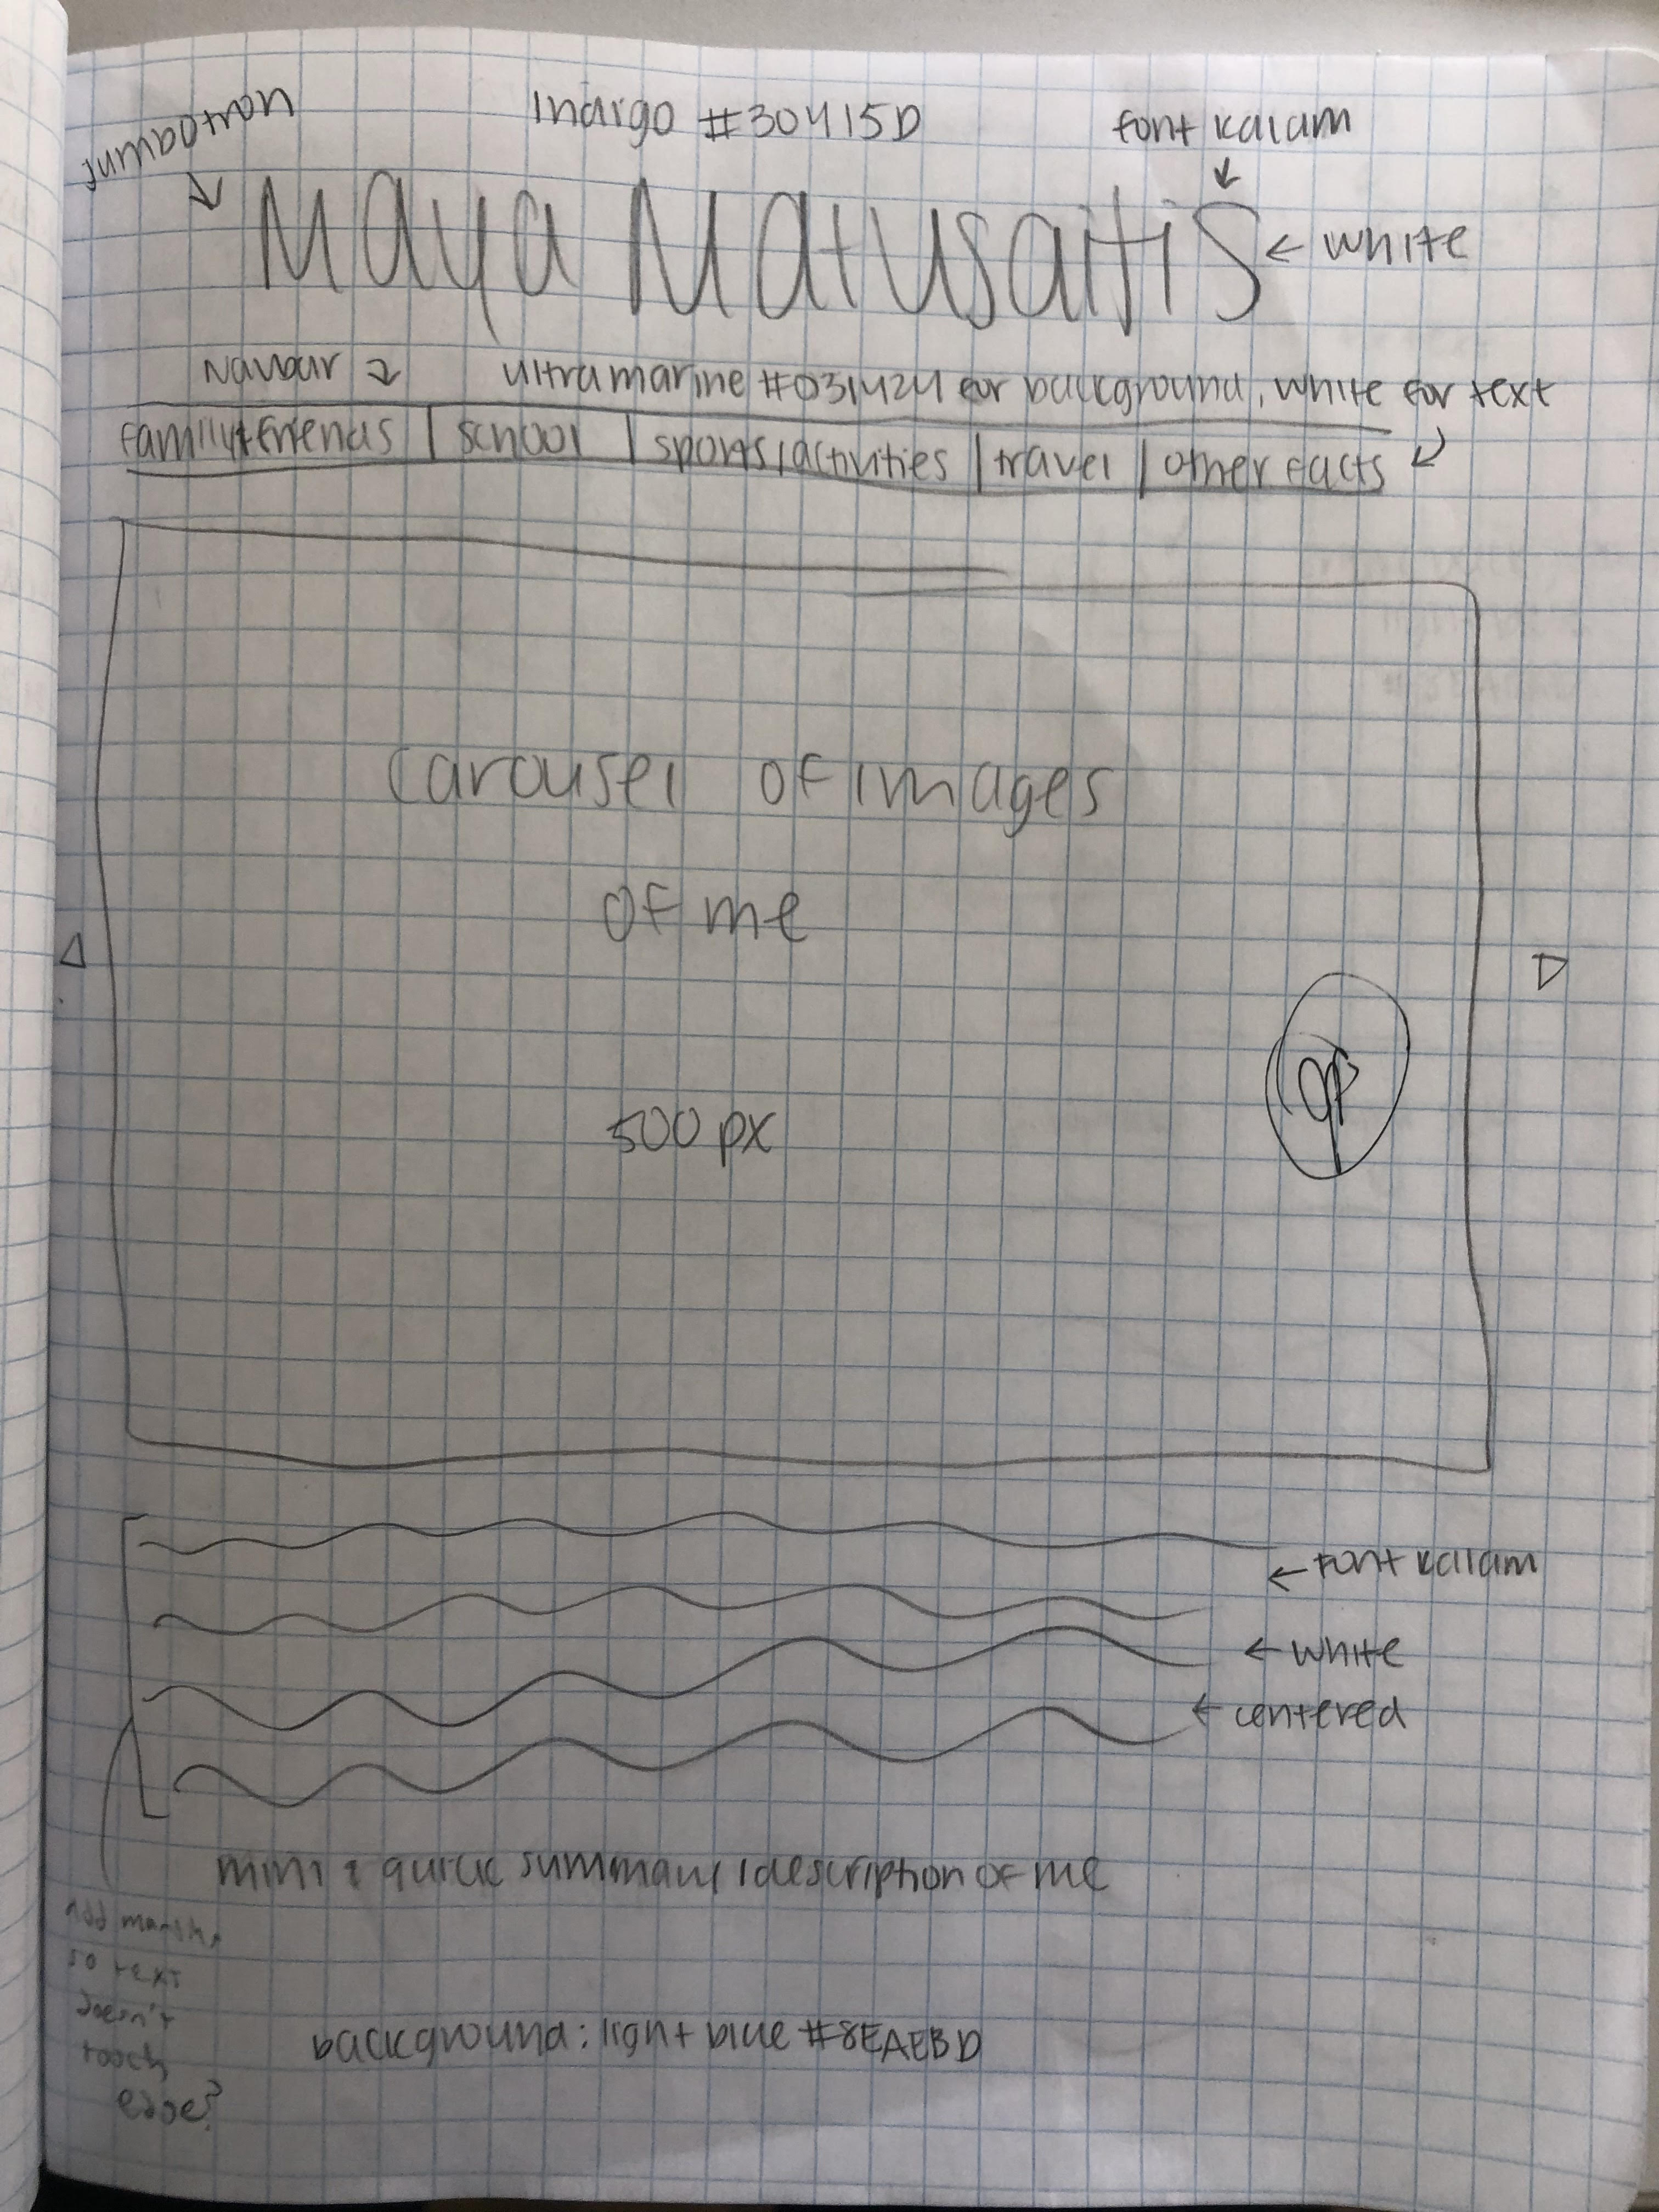 Jumbotron
Indigo #30415D
font kalam
Maya Matusaitis
white
Navbar
ultramarine #031424 for background, white for text
family+friends | school | sports/activities | travel | other facts
carousel of images
of me
500 px
font kalam
white
centered
mini & quick summary/description of me
add margin,
so text
doesn't
touch
edge?
background: light blue #8EAEBD